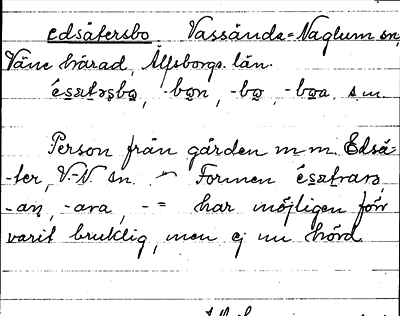 edsätersbo Vassända-Naglum sn,
Väne härad, Älfsborgs län.
é̱sa̱tərs̱bo̱, -bo̱n, -bo̱, -bo̱a s.m.
Person från gården m m. Edsä-
-ter, V.-N. sn. - Formen é̱sa̱trarə,
-aṉ, -ara, - = har möjligen förr
varit bruklig, men ej nu hörd.